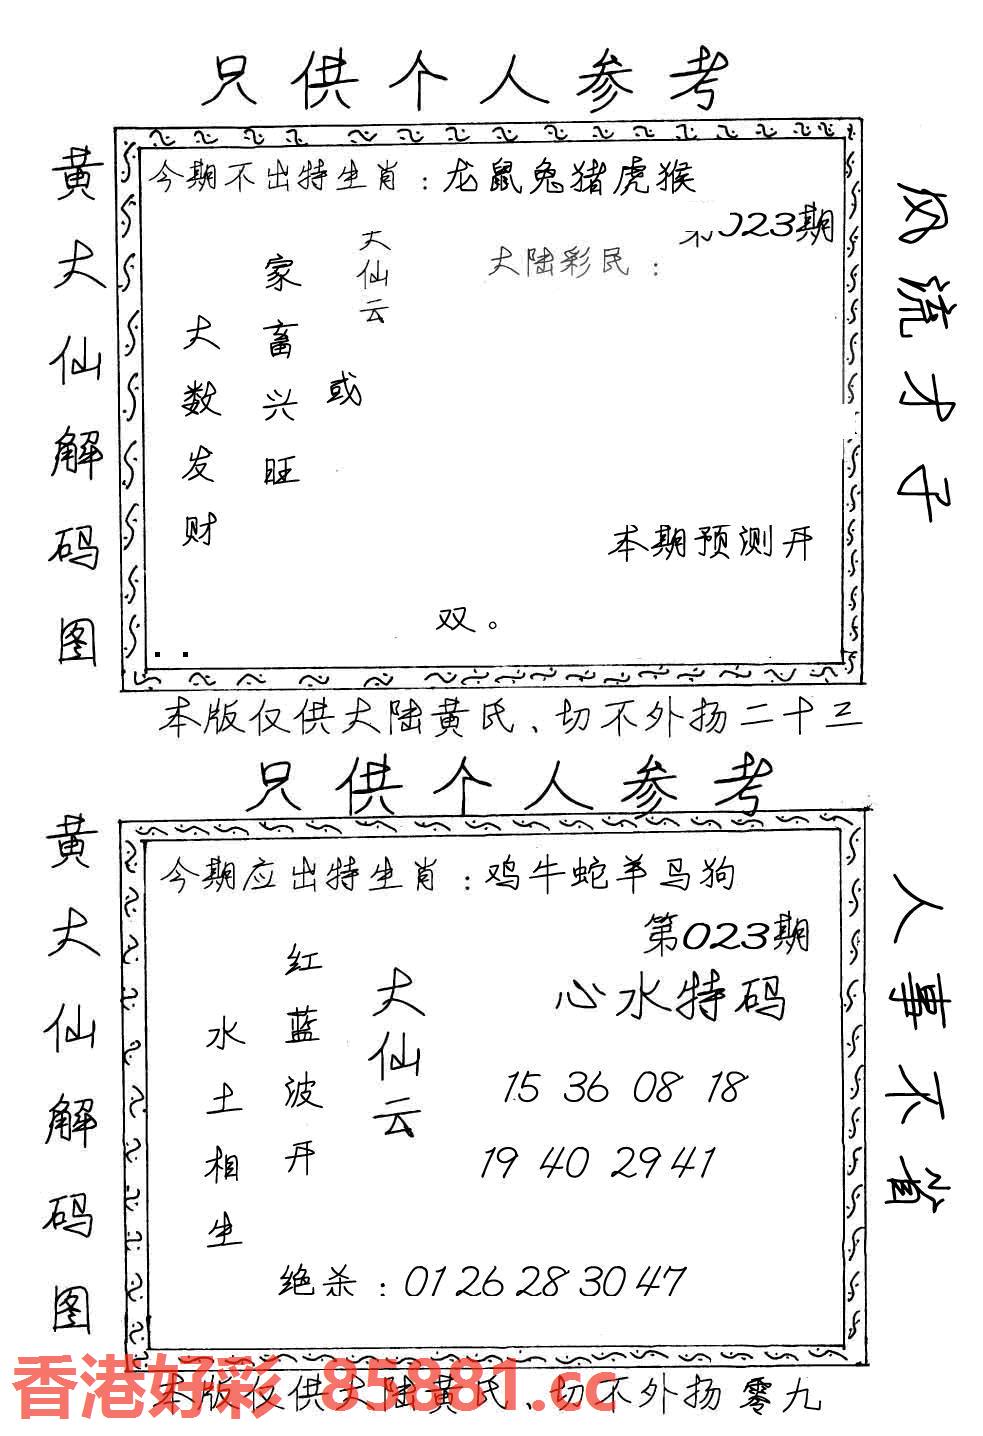 只供个人参考
黄大仙解码图
今期不出特生肖：龙鼠兔猪虎猴
023期
大陆彩民：
大仙云
家畜兴旺
或
大数发财
本期预测开
双。
风流才子
本版仅供大陆黄氏、切不外扬二十三
只供个人参考
黄大仙解码图
今期应出特生肖：鸡牛蛇羊马狗
第023期
心水特码
大仙云
红蓝波开
水土相生
15 36 08 18
19 40 29 41
绝杀：01 26 28 30 47
人事不省
香港好彩 85881.cc
本版仅供大陆黄氏、切不外扬 零九